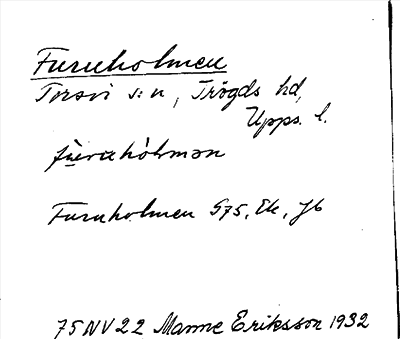 Furuholmen
Torsvi s:n, Trögds hd,
Upps. l.
Furuholmen S75, Ek, Jb
75NV22 Manne Eriksson 1932